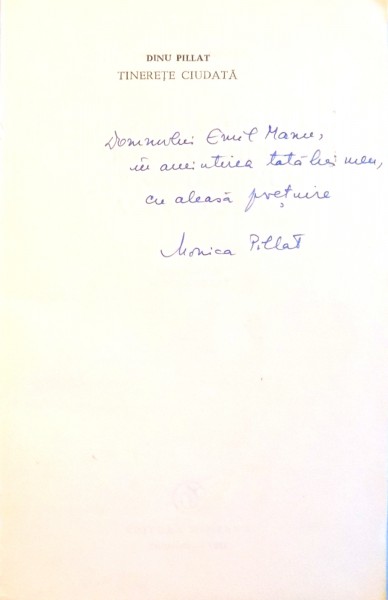 DINU PILLAT
TINEREȚE CIUDATĂ
Domnului Emil Manu,
în amintirea tatălui meu,
cu aleasă prețuire
Monica Pillat